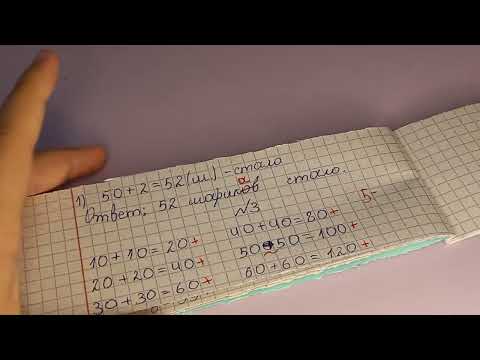 1) 50+2=52(ш.) - стало
Ответ: 52 шариков стало.
а
№3
10+10=20+
20+20=40+
30+30=60+
40+40=80+
50+50=100+
60+60=120+
5-